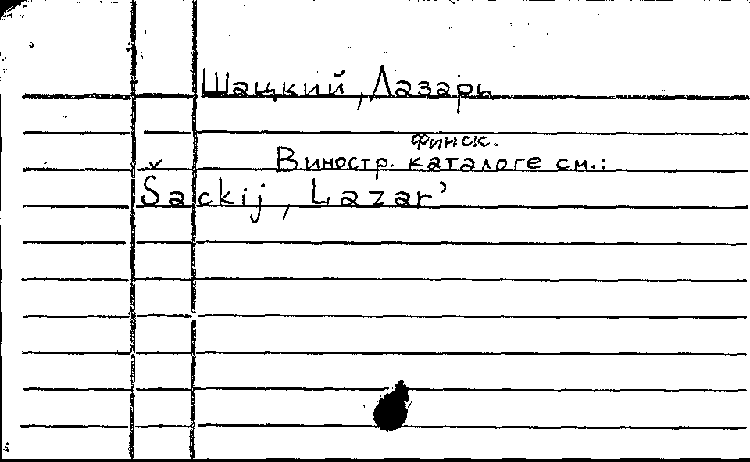 Шацкий, Лазарь
финск.
В иностр. каталоге см.:
Šackij, Lazar'